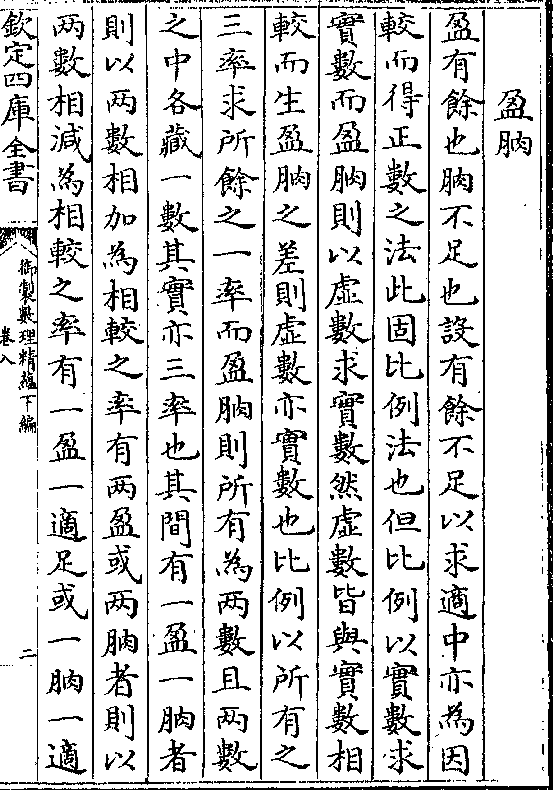 盈朒
盈有餘也朒不足也設有餘不足以求適中亦為因
較而得正數之法此固比例法也但比例以實數求
實數而盈朒則以虛數求實數然虛數皆與實數相
較而生盈朒之差則虛數亦實數也比例以所有之
三率求所餘之一率而盈朒則所有為兩數且兩數
之中各藏一數其實亦三率也其間有一盈一朒者
則以两數相加為相較之率有两盈或两朒者則以
两數相減為相較之率有一盈一適足或一朒一適
欽定四庫全書
御製數理精蘊下編
卷八
二